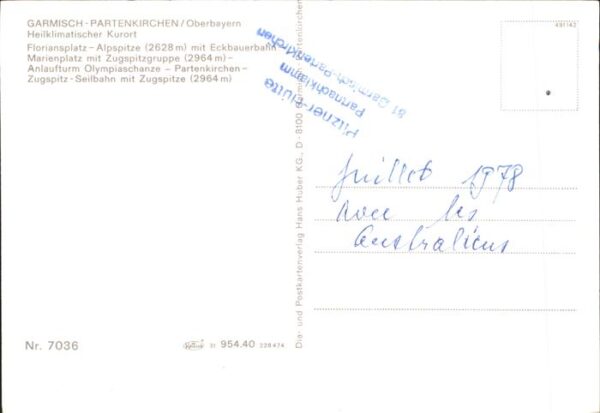 GARMISCH - PARTENKIRCHEN / Oberbayern
Heilklimatischer Kurort
Floriansplatz – Alpspitze (2628 m) mit Eckbauerbahn
Marienplatz mit Zugspitzgruppe (2964 m) –
Anlaufturm Olympiaschanze – Partenkirchen –
Zugspitz - Seilbahn mit Zugspitze (2964 m)
Pitzner-Hütte
Partnachklamm
81 Garmisch-Partenkirchen
491142
Juillet 1978
avec les
Australiens
Dia- und Postkartenverlag Hans Huber KG., D - 8100 Garmisch-Partenkirchen
Nr. 7036
31 954.40 228474